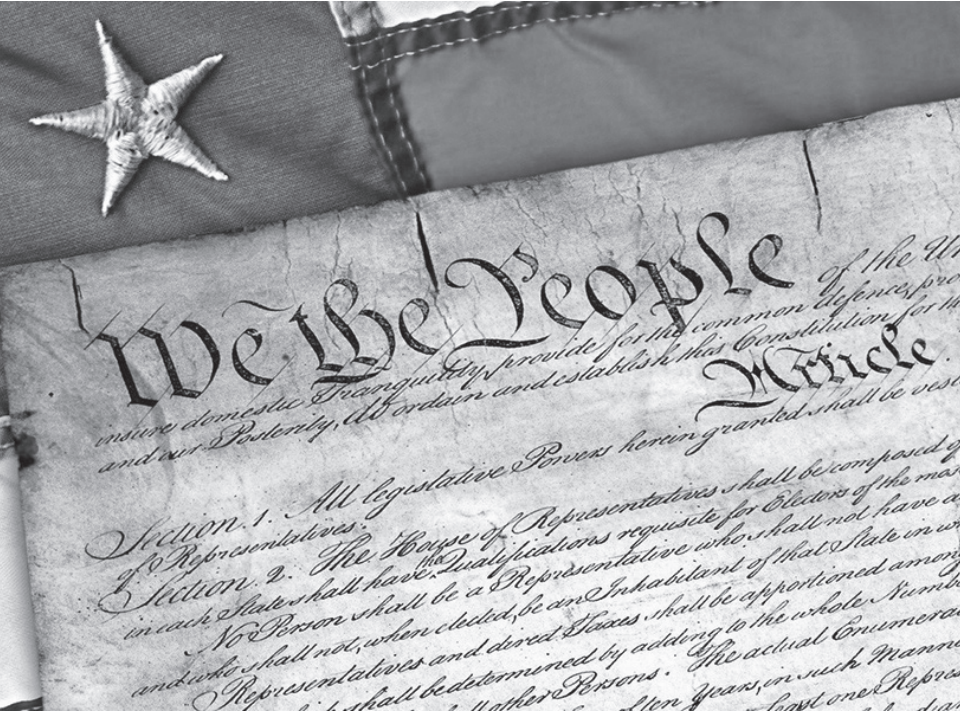 We the People of the Un
insure domestic Tranquility, provide for the common defence, pro
and our Posterity, do ordain and establish this Constitution for th
Article.
Section. 1. All legislative Powers herein granted shall be vest
of Representatives.
Section. 2. The House of Representatives shall be composed o
in each State shall have the Qualifications requisite for Electors of the mos
No Person shall be a Representative who shall not have a
and who shall not, when elected, be an Inhabitant of that State in w
Representatives and dered Taxes shall be apportioned among
shall be determined by adding to the whole Numb
other Persons. The actual Enumera
of ten Years, in such Mann
least one Repres